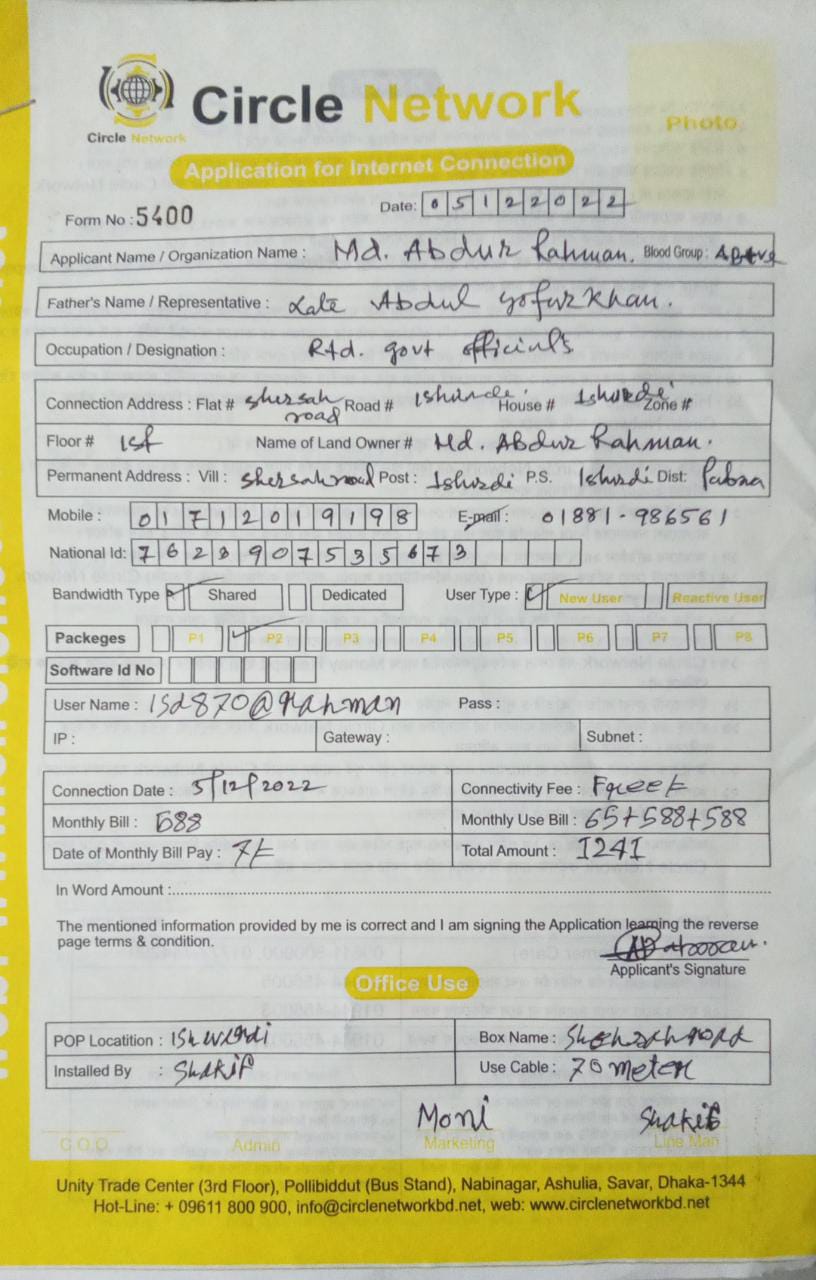 Circle Network
Circle Network
Photo
Application for Internet Connection
Form No : 5400
Date: 05122022
Applicant Name / Organization Name : Md. Abdur Rahman. Blood Group : AB+ve
Father's Name / Representative : Late Abdul Gofur Khan.
Occupation / Designation : Rtd. govt officials
Connection Address : Flat # shersah road Road # Ishurdi House # Ishurdi Zone #
Floor # 1st Name of Land Owner # Md. Abdur Rahman.
Permanent Address : Vill : shersah road Post : Ishurdi P.S. Ishurdi Dist: Pabna
Mobile : 01712019198 E-mail : 01881-986561
National Id: 7628907535673
Bandwidth Type Shared Dedicated User Type : New User Reactive User
Packeges P1 P2 P3 P4 P5 P6 P7 P8
Software Id No
User Name : isd870@rahman Pass :
IP : Gateway : Subnet :
Connection Date : 5/12/2022 Connectivity Fee :
Monthly Bill : 588 Monthly Use Bill : 65+588+588
Date of Monthly Bill Pay : 7/- Total Amount : 1241
In Word Amount :
The mentioned information provided by me is correct and I am signing the Application learning the reverse
page terms & condition.
Applicant's Signature
Office Use
POP Locatition : Ishwardi Box Name : Shershahroad
Installed By : Shakif Use Cable : 70 meter
Moni Shakif
C.O.O Admin Marketing Line Man
Unity Trade Center (3rd Floor), Pollibiddut (Bus Stand), Nabinagar, Ashulia, Savar, Dhaka-1344
Hot-Line: + 09611 800 900, info@circlenetworkbd.net, web: www.circlenetworkbd.net